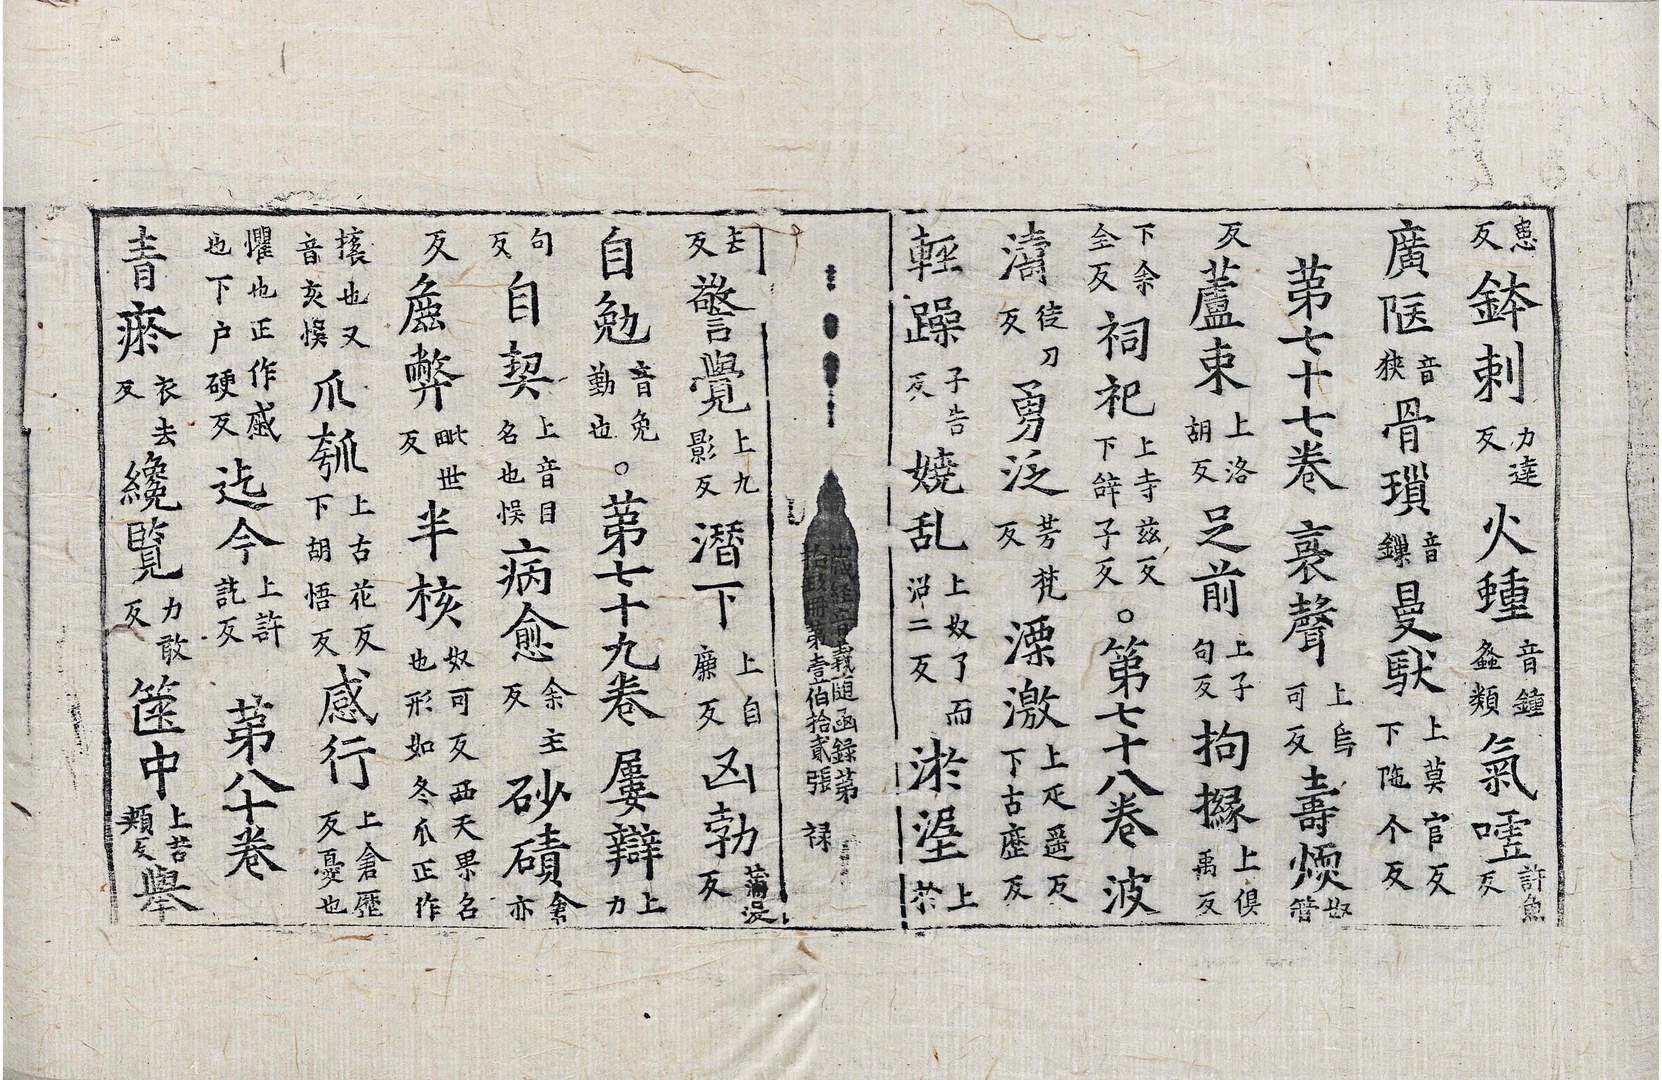 恚反鉢剌力達反火蝩音鐘螽類氣嘘許魚反
廣陿音狹骨瑣音鏁曼馱上莫官反下陁个反
苐七十七卷裒聲上烏可反壽煗奴管
反蘆束上洛胡反足前上子句反拘攈上俱禹反
下余全反祠祀上寺兹反下辝子反。苐七十八卷波
濤徒刀反勇泛芳梵反漂激上疋遥反下古歷反
輕躁子告反嬈乱上奴了而沼二反淤渥上於
藏経音義随函録第拾玖冊第壹伯拾貳張 禄
去反警覺上九影反潜下上自廉反凶勃蒲没反
自勉音免勤也。苐七十九卷屢辯上力
句反自契上音目名也悮病愈余主反砂磧下亦
反麁弊毗世反半核奴可反西天果名也形如冬瓜正作
㨡也又音亥悮爪瓠上古花反下胡悟反慼行上倉歷反憂也
懼也正作慼也下户硬反迄今上許訖反 苐八十卷
青瘀衣去反纔覽力敢反篋中上苦頰反舉